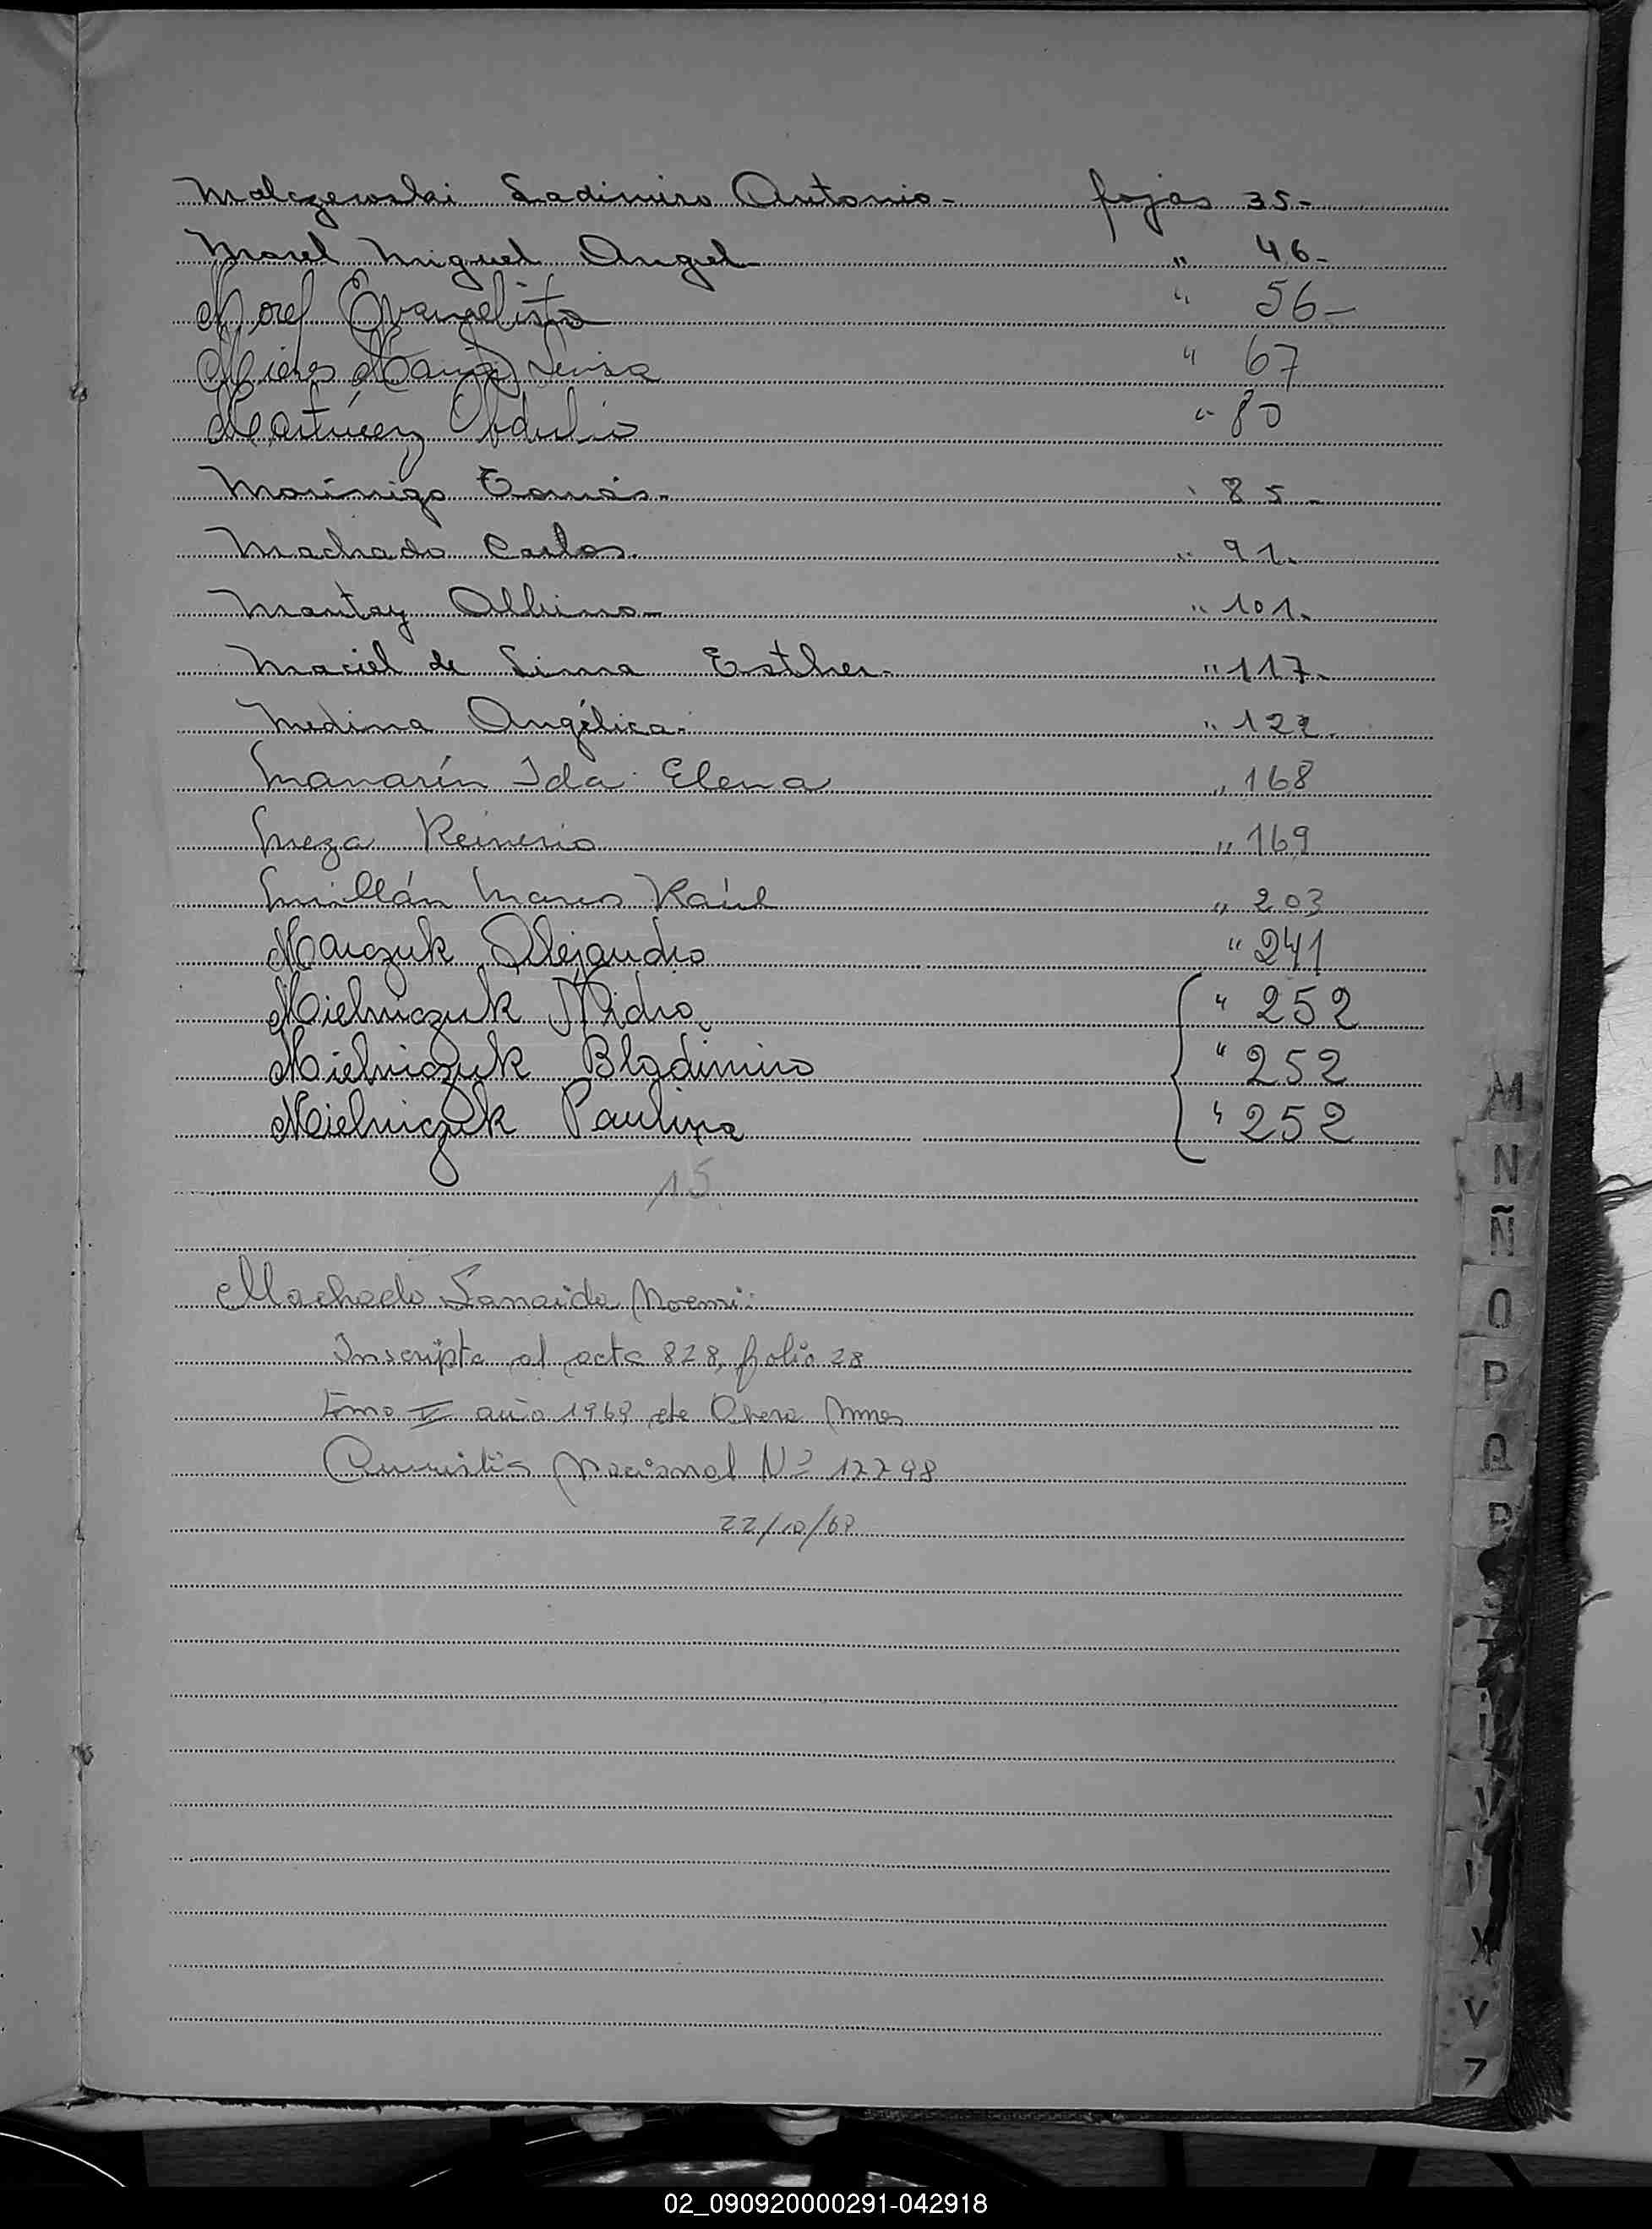 Malczewski Ladimiro Antonio- fojas 35-
Morel Miguel Angel- " 46-
Morel Evangelista " 56-
Mieres Maria Luisa " 67
Martínez Obdulio " 80
Morínigo Tomás- " 85-
Machado Carlos. " 91.
Mantay Albino- " 101.
Maciel de Lima Esther- " 117.
Medina Angélica- " 122.
Manarín Ida Elena " 168
Meza Reinerio " 169
Millán Marcos Raúl " 203
Marczuk Alejandro " 241
Mielniczuk Midro " 252
Mielniczuk Bladimiro " 252
Mielniczuk Paulina " 252
15
Machado Zanaida Noemi:
Inscripta al acta 828, folio 28
tomo V año 1969 de Obera Mnes
Amnistía Nacional Nº 17798
22/10/69
M
N
Ñ
O
P
Q
R
S
T
U
V
X
Y
Z
02_090920000291-042918